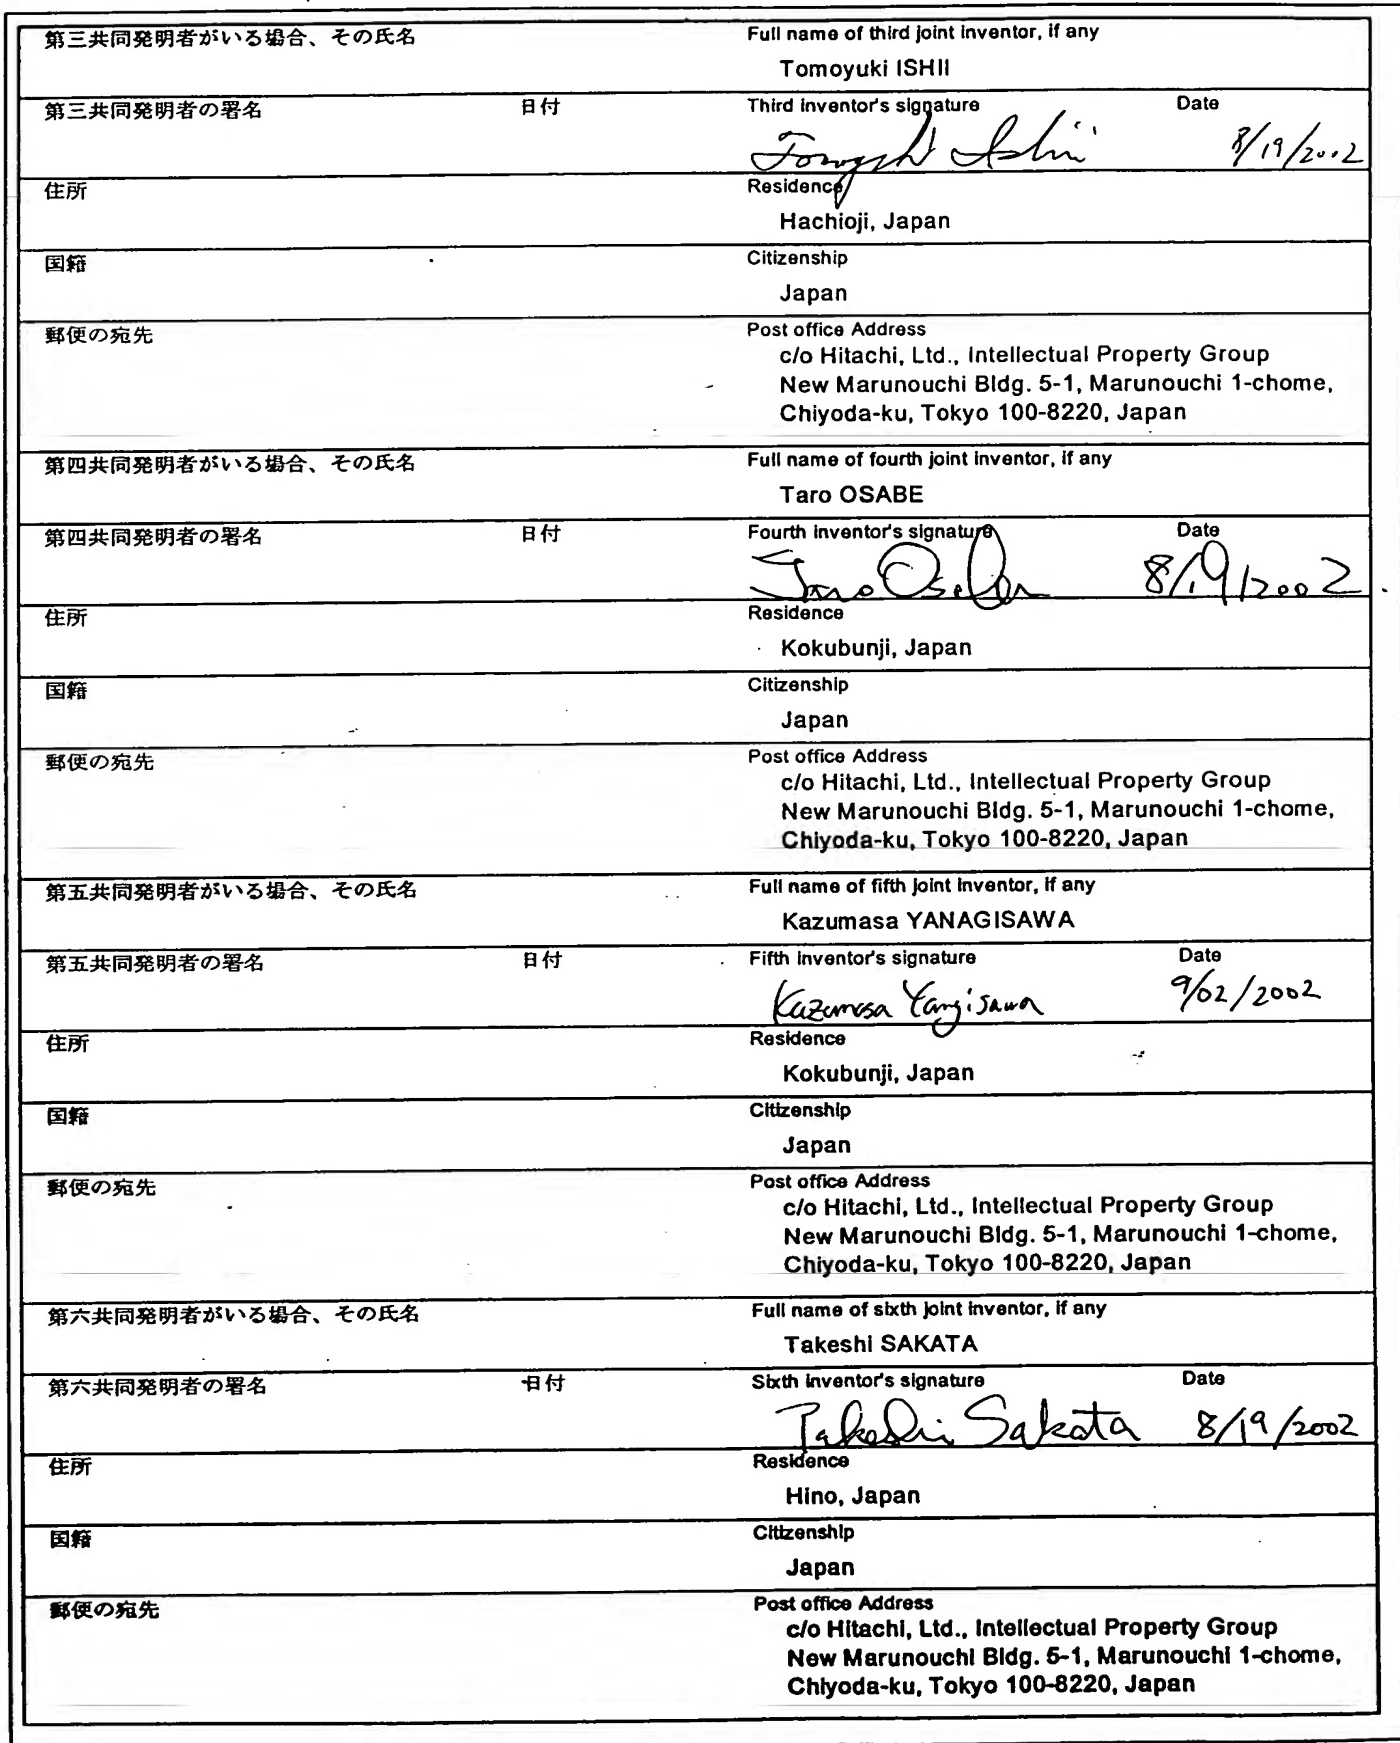 第三共同発明者がいる場合、その氏名
Full name of third joint inventor, if any
Tomoyuki ISHII
第三共同発明者の署名 日付
Third inventor's signature Date
Tomoyuki Ishii 8/19/2002
住所
Residence
Hachioji, Japan
国籍
Citizenship
Japan
郵便の宛先
Post office Address
c/o Hitachi, Ltd., Intellectual Property Group
New Marunouchi Bldg. 5-1, Marunouchi 1-chome,
Chiyoda-ku, Tokyo 100-8220, Japan
第四共同発明者がいる場合、その氏名
Full name of fourth joint inventor, if any
Taro OSABE
第四共同発明者の署名 日付
Fourth inventor's signature Date
Taro Osabe 8/19/2002
住所
Residence
Kokubunji, Japan
国籍
Citizenship
Japan
郵便の宛先
Post office Address
c/o Hitachi, Ltd., Intellectual Property Group
New Marunouchi Bldg. 5-1, Marunouchi 1-chome,
Chiyoda-ku, Tokyo 100-8220, Japan
第五共同発明者がいる場合、その氏名
Full name of fifth joint inventor, if any
Kazumasa YANAGISAWA
第五共同発明者の署名 日付
Fifth inventor's signature Date
Kazumasa Yanagisawa 9/02/2002
住所
Residence
Kokubunji, Japan
国籍
Citizenship
Japan
郵便の宛先
Post office Address
c/o Hitachi, Ltd., Intellectual Property Group
New Marunouchi Bldg. 5-1, Marunouchi 1-chome,
Chiyoda-ku, Tokyo 100-8220, Japan
第六共同発明者がいる場合、その氏名
Full name of sixth joint inventor, if any
Takeshi SAKATA
第六共同発明者の署名 日付
Sixth inventor's signature Date
Takeshi Sakata 8/19/2002
住所
Residence
Hino, Japan
国籍
Citizenship
Japan
郵便の宛先
Post office Address
c/o Hitachi, Ltd., Intellectual Property Group
New Marunouchi Bldg. 5-1, Marunouchi 1-chome,
Chiyoda-ku, Tokyo 100-8220, Japan